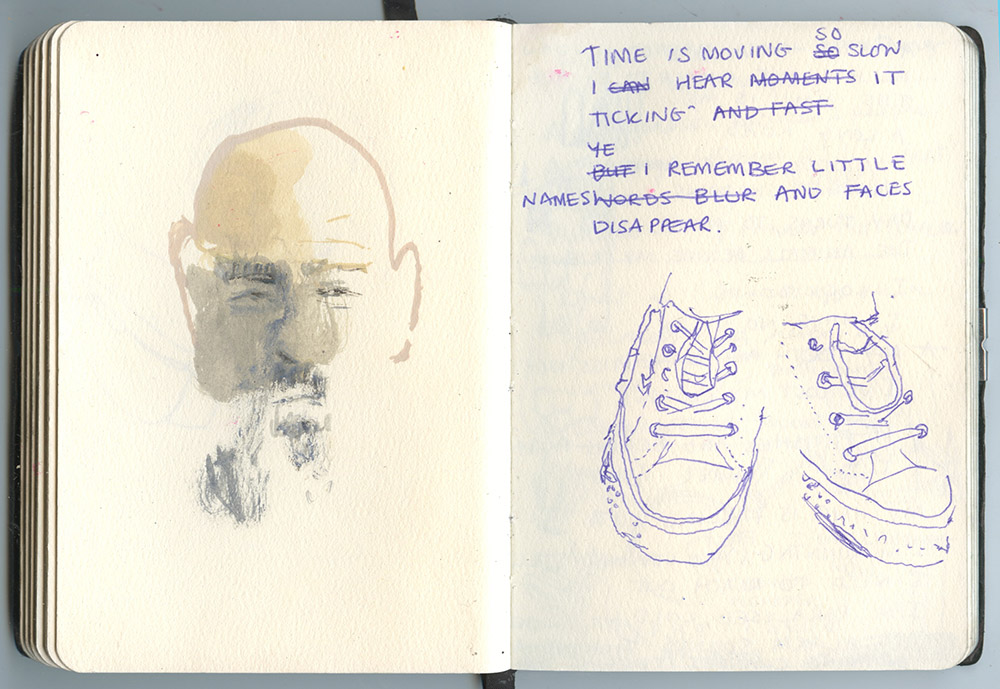 SO
TIME IS MOVING SO SLOW
I CAN HEAR MOMENTS IT
TICKING^ AND FAST
YE
BUT I REMEMBER LITTLE
NAMES WORDS BLUR AND FACES
DISAPPEAR.